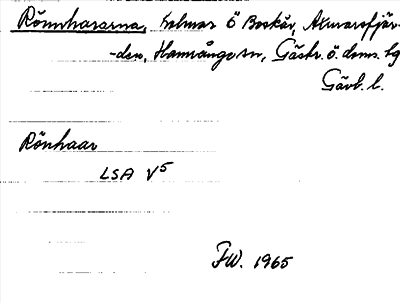 Rönnhararna, holmar Ö Boskär, Axmarsfjär-
-den, Hamrånge sn, Gästr. ö. doms. hg
Gävl. l.
Rönhaar
LSA V5
FW. 1965